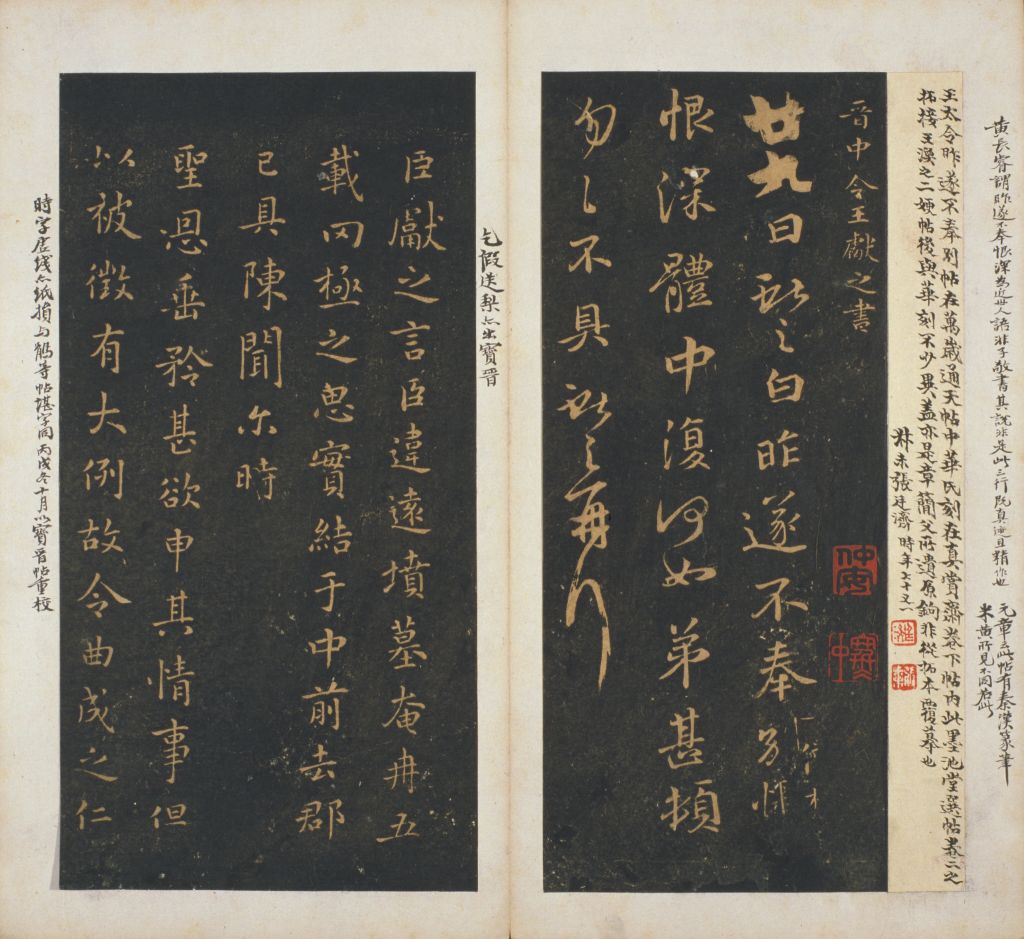 黃長睿謂昨遂不奉恨深為近世人語非子敬書其說非是此三行既真迹且精作也
元章云此帖有秦漢篆筆
米黃所見不同若此
王大令昨遂不奉別帖在萬歲通天帖中華氏刻在真賞齋卷下帖內此墨池堂選帖卷二之
拓接王渙之二嫂帖後與華刻不少異蓋亦是章簡父所遺原鉤非從拓本覆摹也
叔未張廷濟時年七十又一
晉中令王獻之書
廿九日獻之白昨遂不奉別悵
恨深體中復何如弟甚頓
勿勿不具獻之再行
乞假送梨亦出寶晉
臣獻之言臣違遠墳墓奄冉五
載罔極之思實結于中前去郡
已具陳聞尒時
聖恩垂矜甚欲申其情事但
以被徵有大例故令曲成之仁
時字居綫亦紙損與鵝等帖堪字同丙戌冬十月以寶晉帖重校